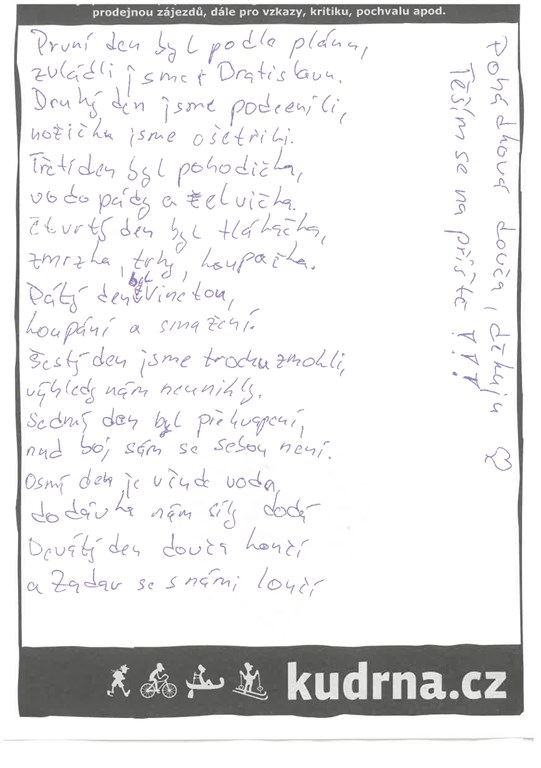 prodejnou zájezdů, dále pro vzkazy, kritiku, pochvalu apod.
První den byl podle plánu,
zvládli jsme i Bratislavu.
Druhý den jsme podcenili,
nožičku jsme ošetřili.
Třetí den byl pohodička,
vodopády a želvička.
Čtvrtý den byl tlačačka,
zmrzka, trhy, houpačka.
Pátý den byl Vinetou,
houpání a smažení.
Šestý den jsme trochu zmokli,
výhledy nám neunikly.
Sedmý den byl překvapení,
nud boj sám se sebou není.
Osmý den je všude voda,
dodávka nám síly dodá
Devátý den dovča končí
a Zadar se s námi loučí
Pohádková dovča, děkuju ♡
Těším se na příště!!!
kudrna.cz